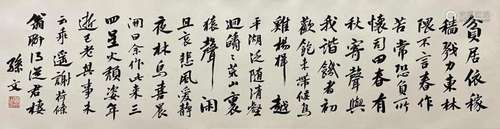 貧居依稼
穡戮力東林
隈不言春作
苦常恐負所
懷司田眷有
秋寄聲與
我諧飢者初
歡飽束帶候鳴
雞揚楫越
平湖泛隨清壑
迴鬱鬱荒山裏
猿聲閑
且哀悲風愛靜
夜林鳥喜晨
開曰余作此來三
四星火頹姿年
逝已老其事未
云乖遙謝荷蓧
翁聊得從君棲
孫文